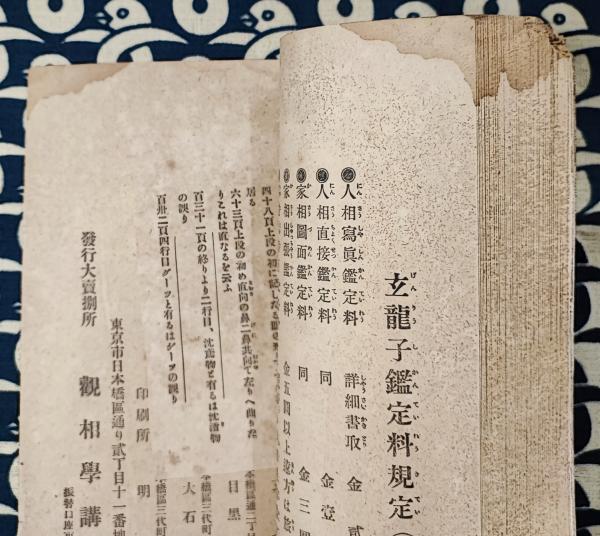 玄龍子鑑定料規定(
人相寫眞鑑定料 詳細書取 金貳
人相直接鑑定料 同 金壹
家相圖面鑑定料 同 金三圓
家相出張鑑定料 金五圓以上遠方は旅
四十八頁上段の初に記したる
居る
六十三頁上段の初め直向の鼻二鼻共向て左りへ曲りた
りこれは直なるを云ふ
百三十一頁の終りより二行目、沈
の誤り
百卅二頁四行目グーツと有るはシーツの誤り
印刷所 明
東京市日本橋區通り貳丁目十一番地
發行大賣捌所 觀相學講
橋區通二丁目
目黑
本橋區三代町
大石
本橋區三代町
振替口座